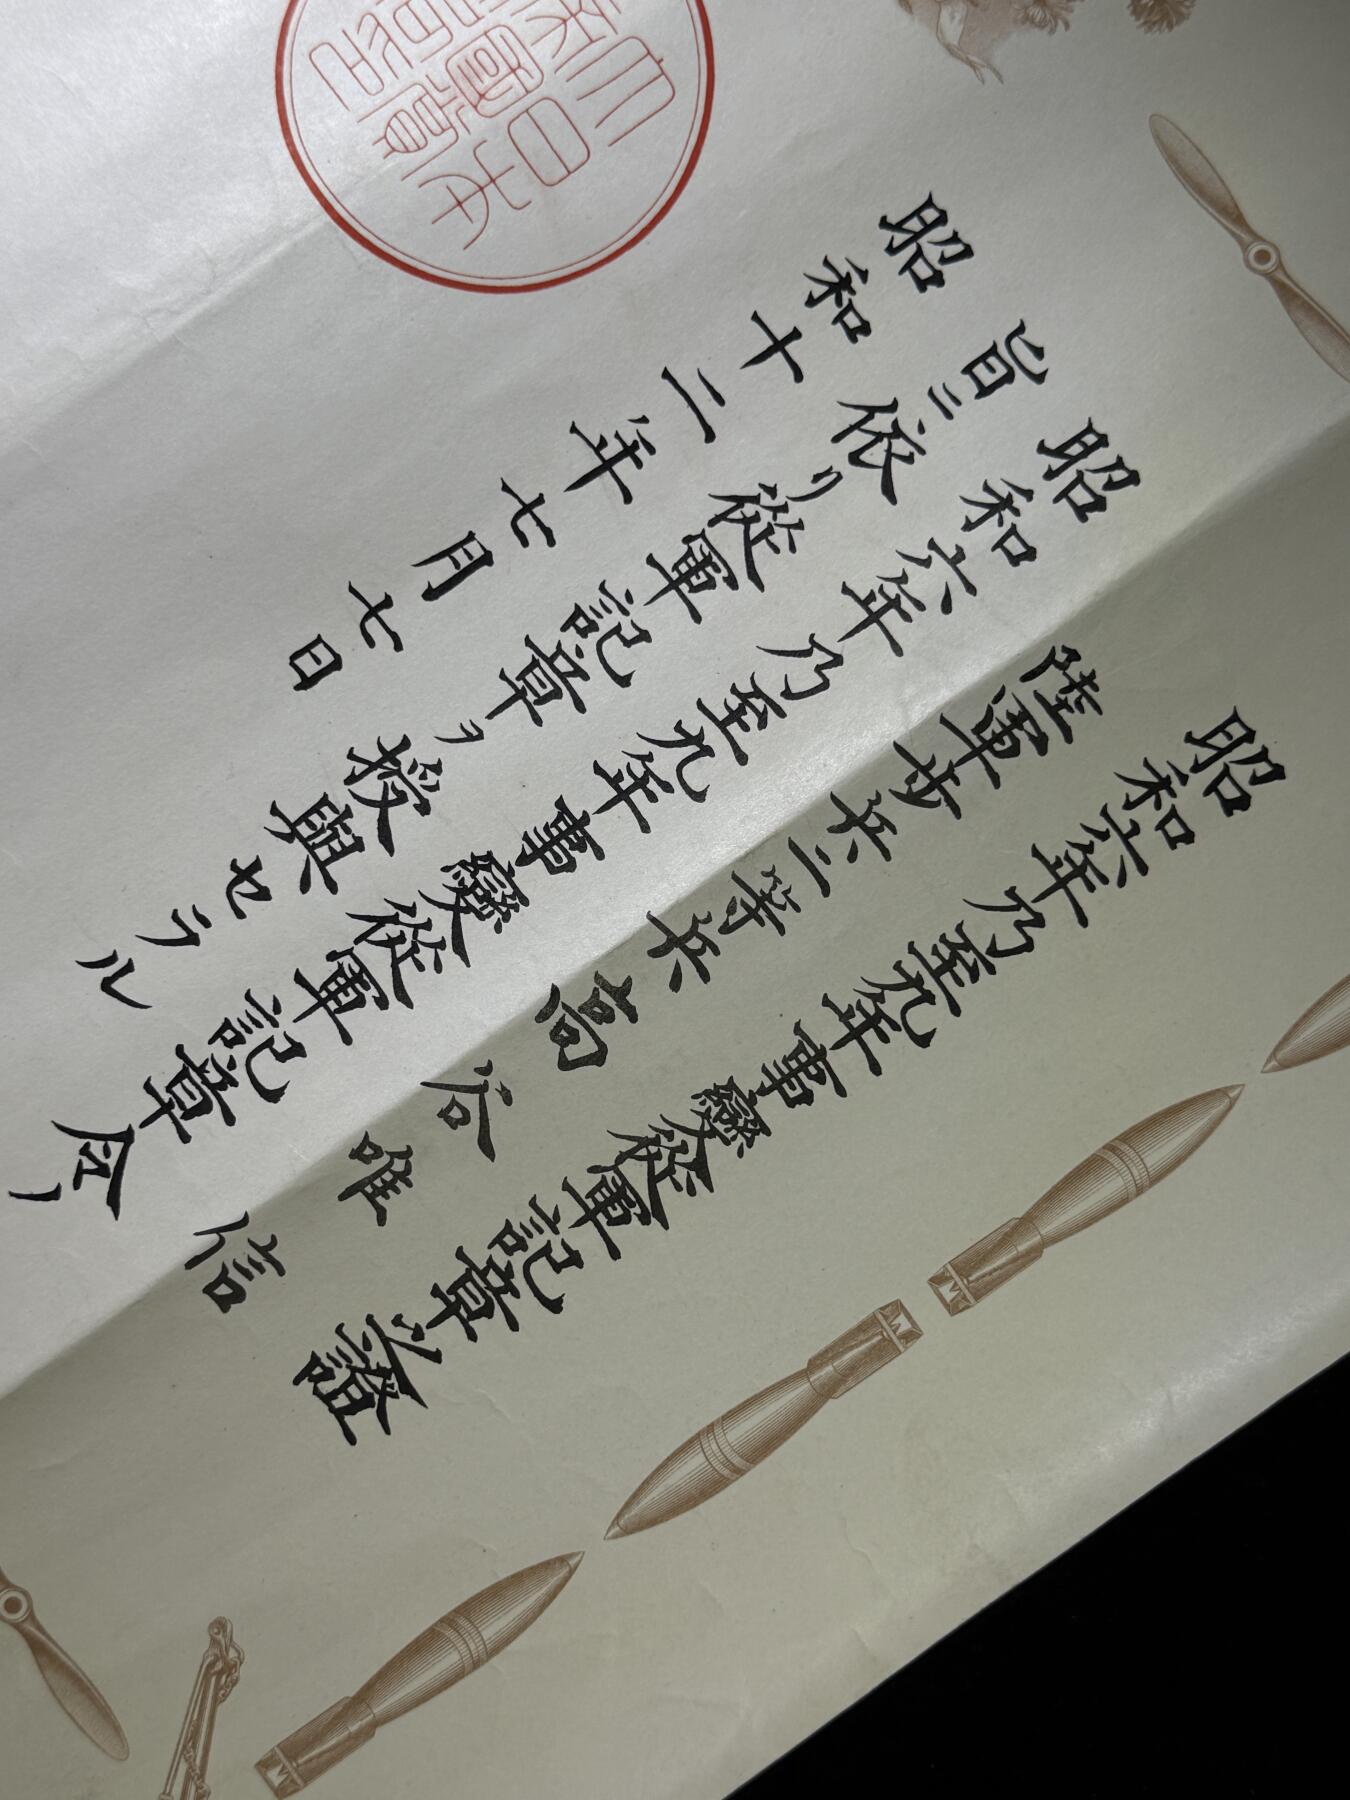 昭和六年乃至九年事變從軍記章之證
陸軍步兵二等兵高谷唯信
昭和六年乃至九年事變從軍記章令ノ
旨ニ依リ從軍記章ヲ授與セラル
昭和十二年七月七日